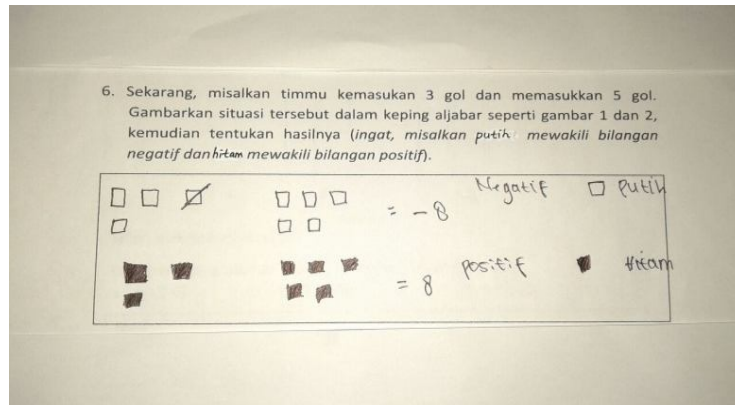 6. Sekarang, misalkan timmu kemasukan 3 gol dan memasukkan 5 gol.
Gambarkan situasi tersebut dalam keping aljabar seperti gambar 1 dan 2,
kemudian tentukan hasilnya (ingat, misalkan putih mewakili bilangan
negatif dan hitam mewakili bilangan positif).
= -8 Negatif Putih
= 8 positif Hitam